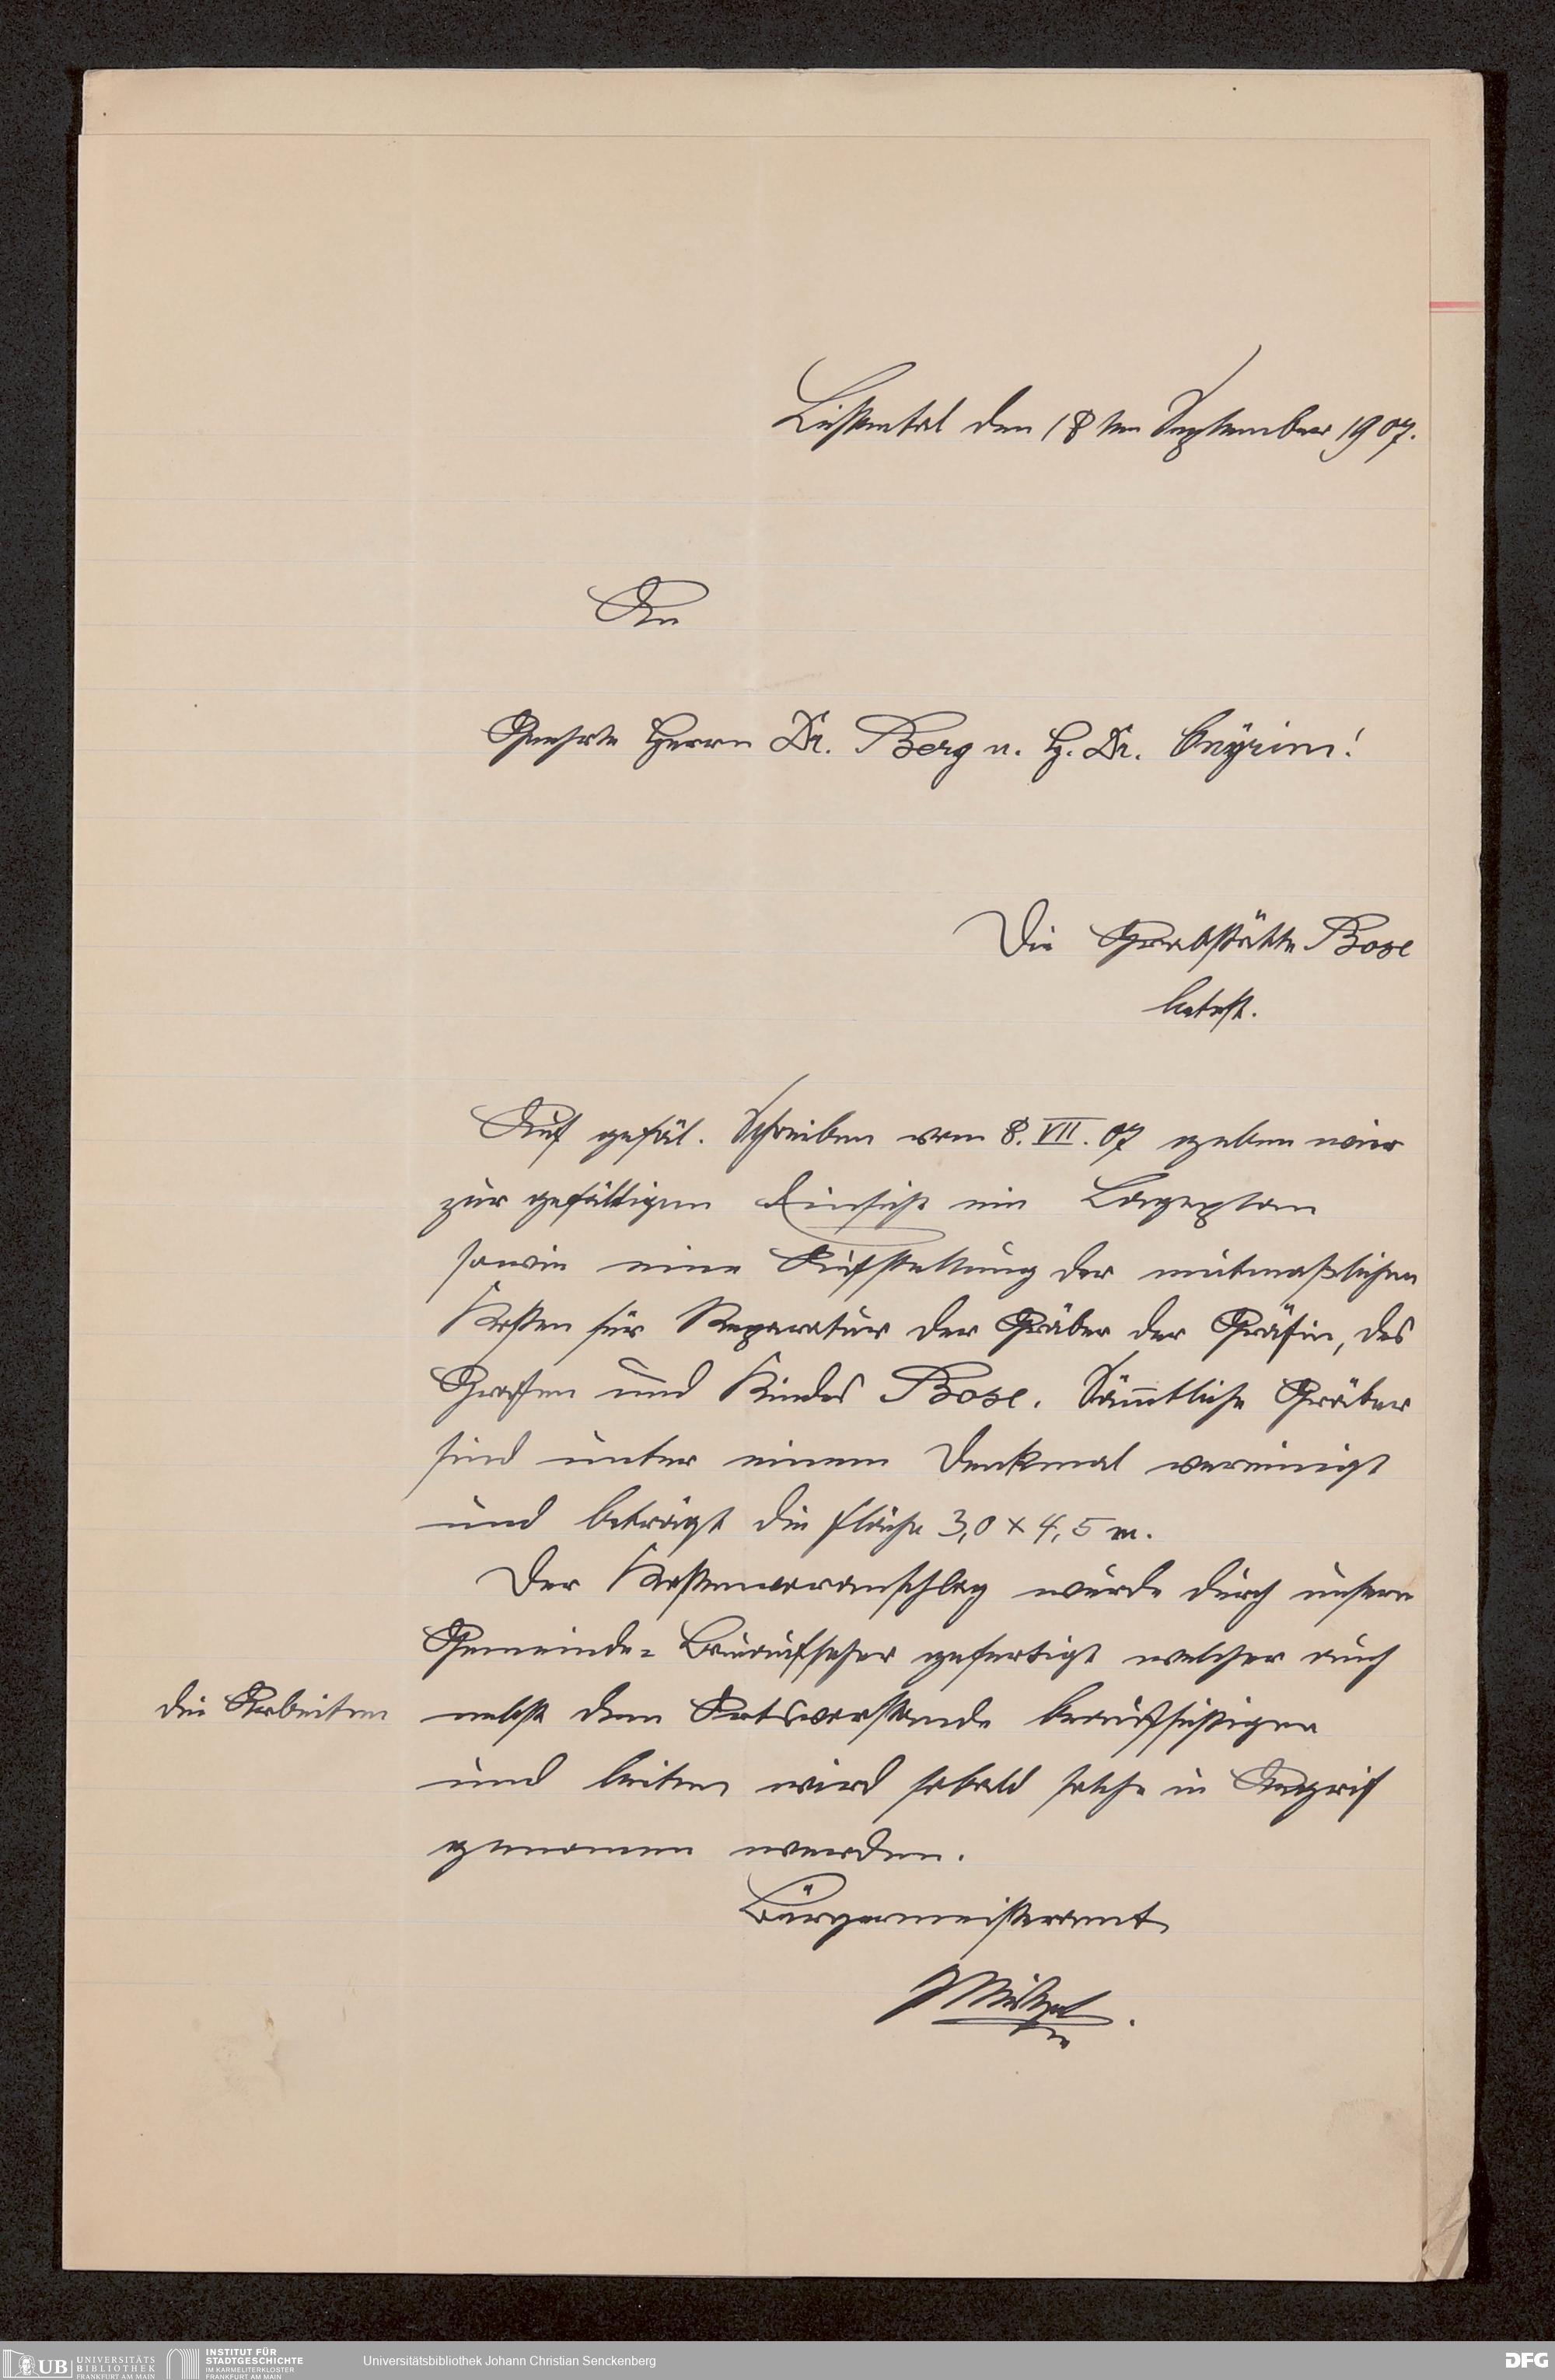 Lichtental den 18ten September 1907.
An
Geehrte Herrn Dr. Berg u. H. Dr.
Die Grabstätte Bose
betrft.
Auf gefäl. Schreiben vom 8. VII. 07 geben wier
zur gefälligen Einsicht ein Lageplan
sowie eine Aufstellung der mutmaßlichen
Kosten für Reparatur der Gräber der Gräfin, des
Grafen und Kindes Bose. Sämmtliche Gräber
sind unter einem Denkmal vereinigt
und beträgt die Fläche 3,0 x 4,5 m.
Der Kostenvoranschlag wurde durch unsern
Gemeinde= Bauaufseher gefertigt welcher auch
die Arbeiten nebst dem Ortsvorstande beaufsichtigen
und leiten wird sobald solche in Angrif
genomen werden.
Bürgermeisteramt
UB UNIVERSITÄTS
BIBLIOTHEK
FRANKFURT AM MAIN
INSTITUT FÜR
STADTGESCHICHTE
IM KARMELITERKLOSTER
FRANKFURT AM MAIN
Universitätsbibliothek Johann Christian Senckenberg
DFG